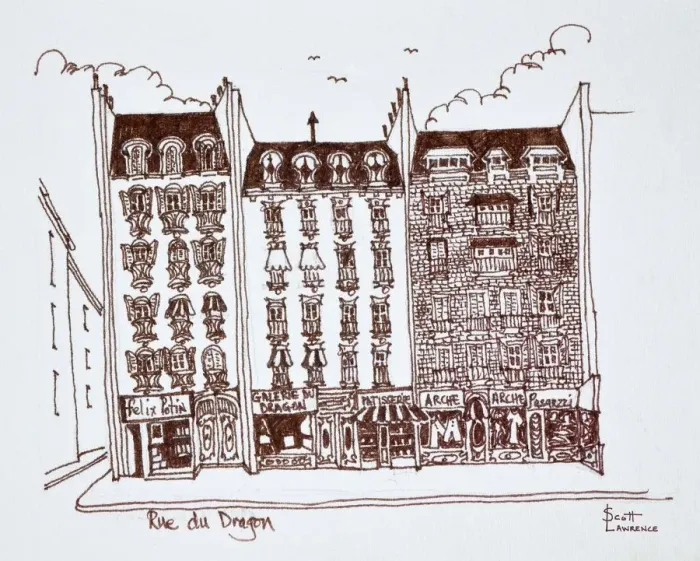 Felix Potin
GALERIE DU
DRAGON
PATISSERIE
ARCHE
ARCHE
Rue du Dragon
Scott
LAWRENCE